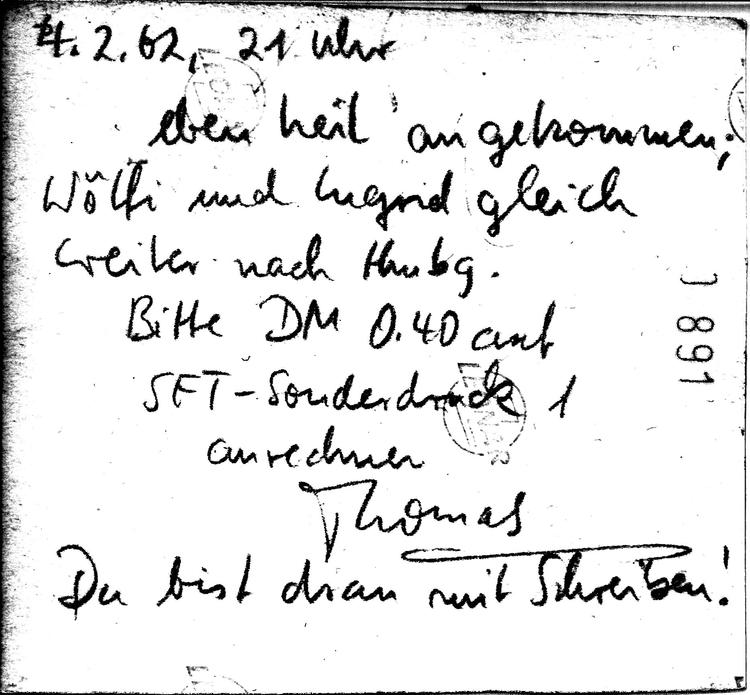 4.2.62, 21 Uhr
eben heil angekommen;
Wölfi und Ingrid gleich
weiter nach Hmbg.
Bitte DM 0.40 auf
SFT-Sonderdruck 1
anrechnen
Thomas
Du bist dran mit Schreiben!
1891